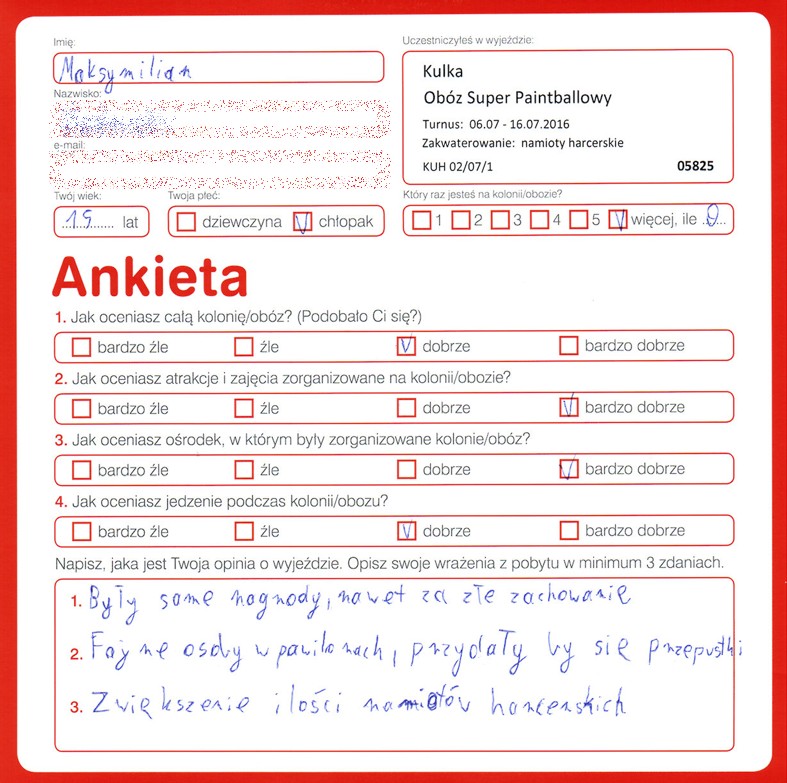 Imię:
Maksymilian
Nazwisko:
e-mail:
Uczestniczyłeś w wyjeździe:
Kulka
Obóz Super Paintballowy
Turnus: 06.07 - 16.07.2016
Zakwaterowanie: namioty harcerskie
KUH 02/07/1 05825
Twój wiek: Twoja płeć: Który raz jesteś na kolonii/obozie?
15 lat dziewczyna V chłopak 1 2 3 4 5 V więcej, ile 9
Ankieta
1. Jak oceniasz całą kolonię/obóz? (Podobało Ci się?)
bardzo źle źle V dobrze bardzo dobrze
2. Jak oceniasz atrakcje i zajęcia zorganizowane na kolonii/obozie?
bardzo źle źle dobrze V bardzo dobrze
3. Jak oceniasz ośrodek, w którym były zorganizowane kolonie/obóz?
bardzo źle źle dobrze V bardzo dobrze
4. Jak oceniasz jedzenie podczas kolonii/obozu?
bardzo źle źle V dobrze bardzo dobrze
Napisz, jaka jest Twoja opinia o wyjeździe. Opisz swoje wrażenia z pobytu w minimum 3 zdaniach.
1. Były same nagrody, nawet za złe zachowanie
2. Fajne osoby w pawilonach, przydały by się przepustki
3. Zwiększenie ilości namiotów harcerskich